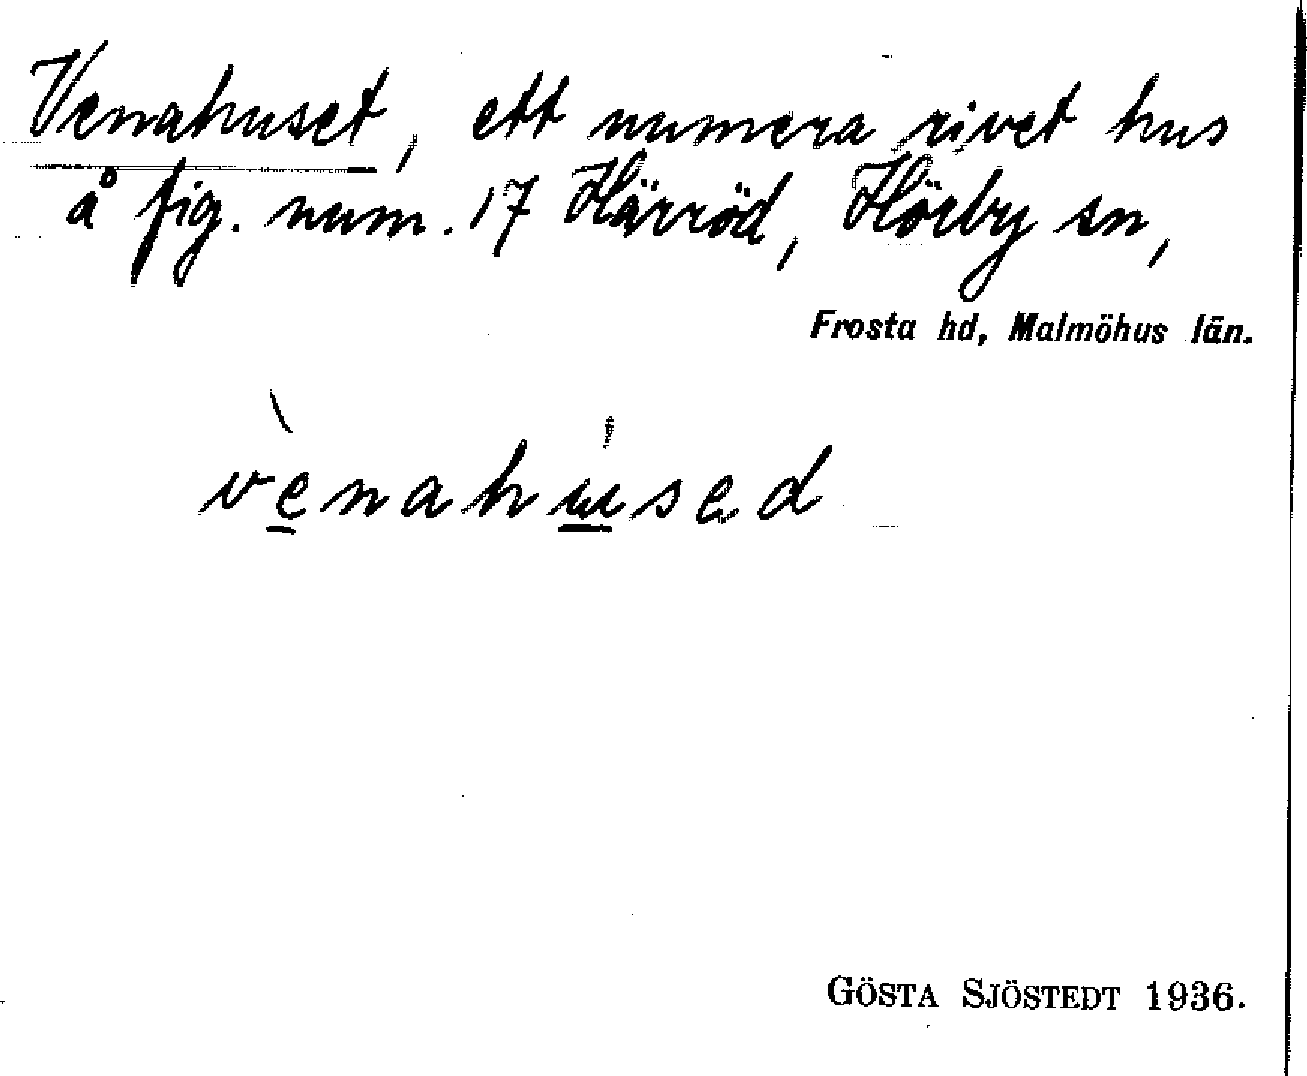 Venahuset, ett numera rivet hus
å fig. num. 17 Härröd, Hörby sn,
Frosta hd, Malmöhus län.
vènahu̍sed
GÖSTA SJÖSTEDT 1936.